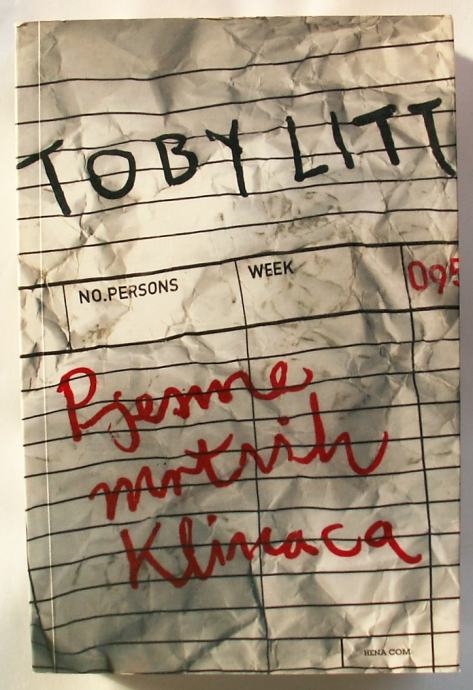 TOBY LITT
NO.PERSONS WEEK 095
Pjesme
mrtvih
Klinaca
HENA COM